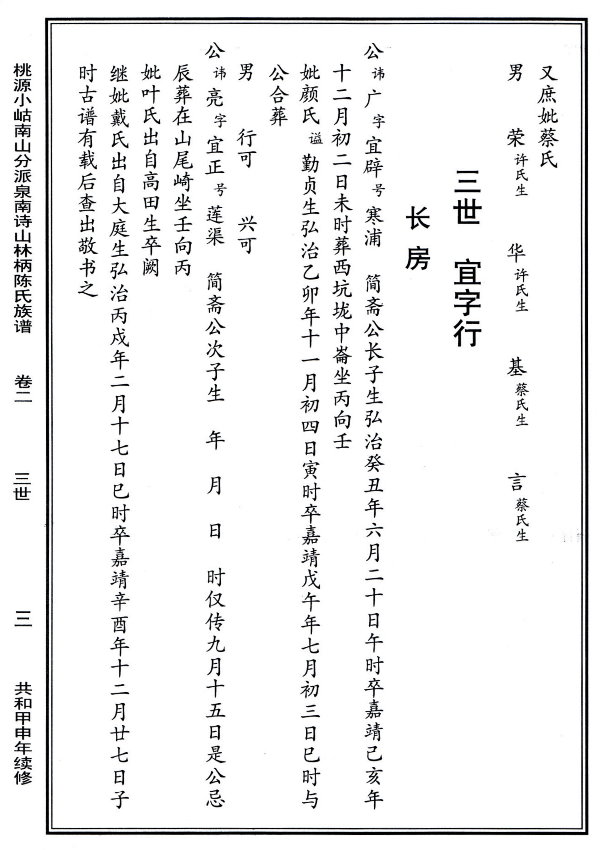 又庶妣蔡氏
男 荣许氏生 华许氏生 基蔡氏生 言蔡氏生
三世 宜字行
长房
公讳广字宜辟号寒浦 简斋公长子生弘治癸丑年六月二十日午时卒嘉靖己亥年
十二月初二日未时葬西坑垅中崙坐丙向壬
妣颜氏谥勤贞生弘治乙卯年十一月初四日寅时卒嘉靖戊午年七月初三日巳时与
公合葬
男 行可 兴可
公讳亮字宜正号莲渠 简斋公次子生 年 月 日 时仅传九月十五日是公忌
辰葬在山尾崎坐壬向丙
妣叶氏出自高田生卒阙
继妣戴氏出自大庭生弘治丙戌年二月十七日巳时卒嘉靖辛酉年十二月廿七日子
时古谱有载后查出敬书之
桃源小岵南山分派泉南诗山林柄陈氏族谱 卷二 三世 三 共和甲申年续修